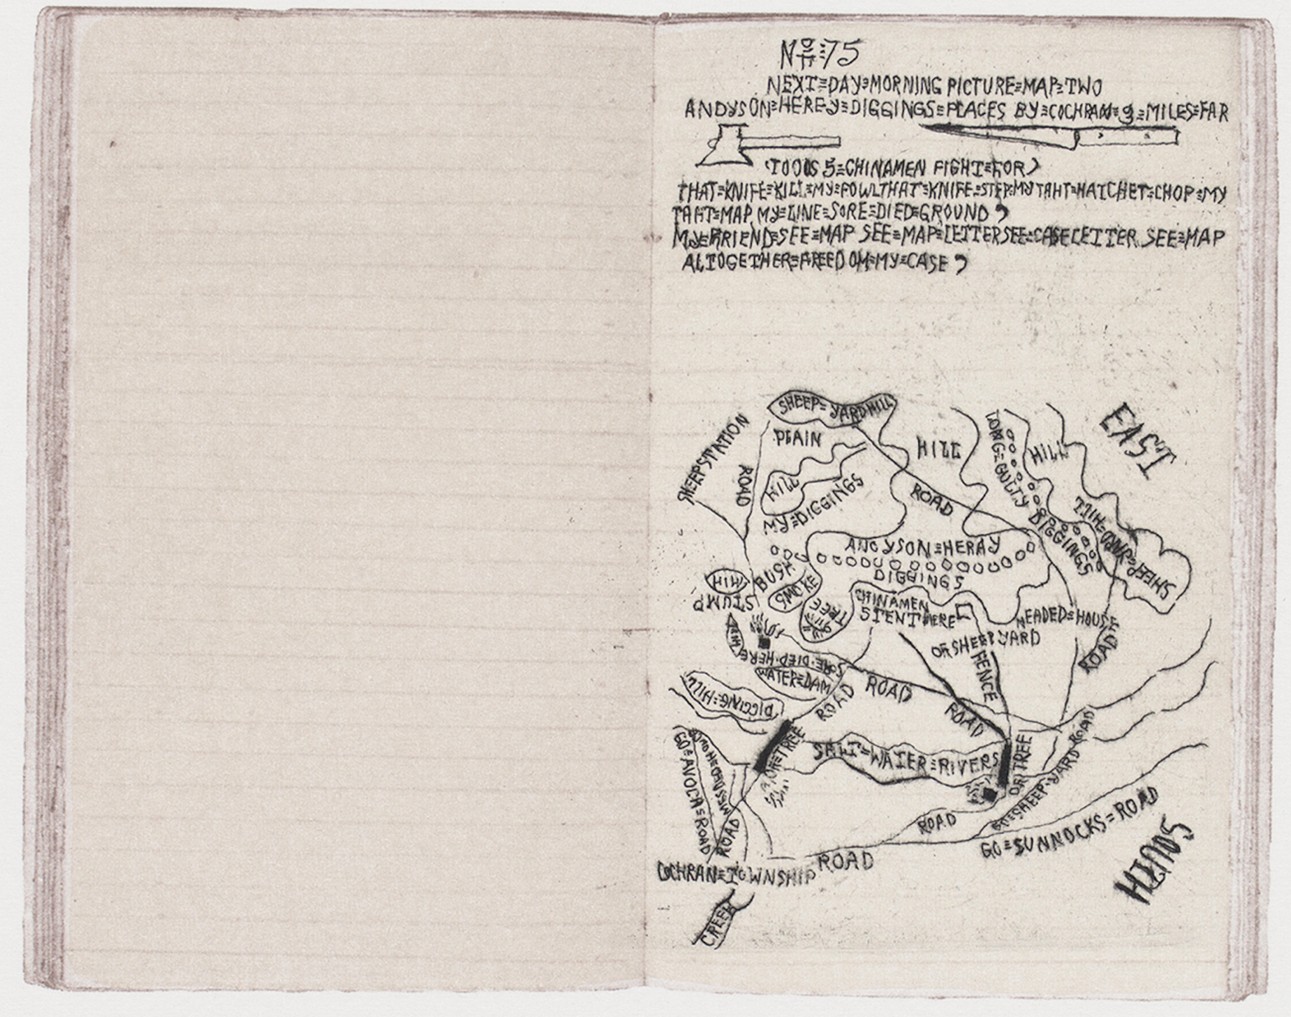 No 75
NEXT=DAY=MORNING PICTURE=MAP=TWO
ANDYSON=HEREY=DIGGINGS=PLACES BY=COCHRAN=9=MILES=FAR
(TOOUS 5=CHINAMEN FIGHT=FOR)
THAT=KNIFE=KILL=MY=FOWL THAT=KNIFE=STEP=MY TAHT=HATCHET=CHOP=MY
TAHT=MAP MY=LINE=SORE=DIED=GROUND
MY=FRIEND=SEE=MAP SEE=MAP=LETTER SEE=CASE LETTER SEE=MAP
ALTOGETHER=FREEDOM=MY=CASE
SHEEP=YARD HILL
SHEEPSTATION
ROAD
PLAIN
HILL
MY=DIGGINGS
HILL
ROAD
LONG=GULTY DIGGINGS
HILL
EAST
SHEEP=YARD=HILL
ANDYSON=HERAY
DIGGINGS
BUSH
SMOKE
TREE
STUMP
CHINAMEN
STENT HERE
NEADED=HOUSE
OF SHEEP YARD
FENCE
ROAD
SORE=DIED=HERE
WATER=DAM
DIGGING=HILL
ROAD
ROAD
ROAD
SALT=WATER=RIVERS
TREE
TREE
GO=AVOCA=ROAD
ROAD
ROAD
GO=SHEEP=YARD ROAD
GO=SUNNOCKS=ROAD
COCHRAN=TOWNSHIP ROAD
CREEK
SOUTH